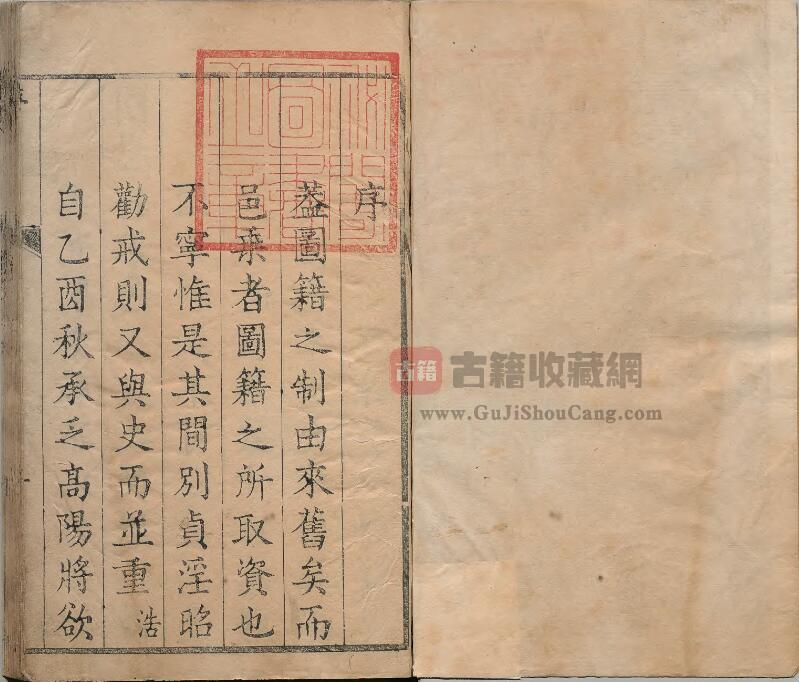 序
葢圖籍之制由來舊矣而
邑乗者圖籍之所取資也
不寧惟是其間別貞淫昭
勸戒則又與史而並重浩
自乙酉秋承乏髙陽將欲
古籍
古籍收藏網
www.GuJiShouCang.com